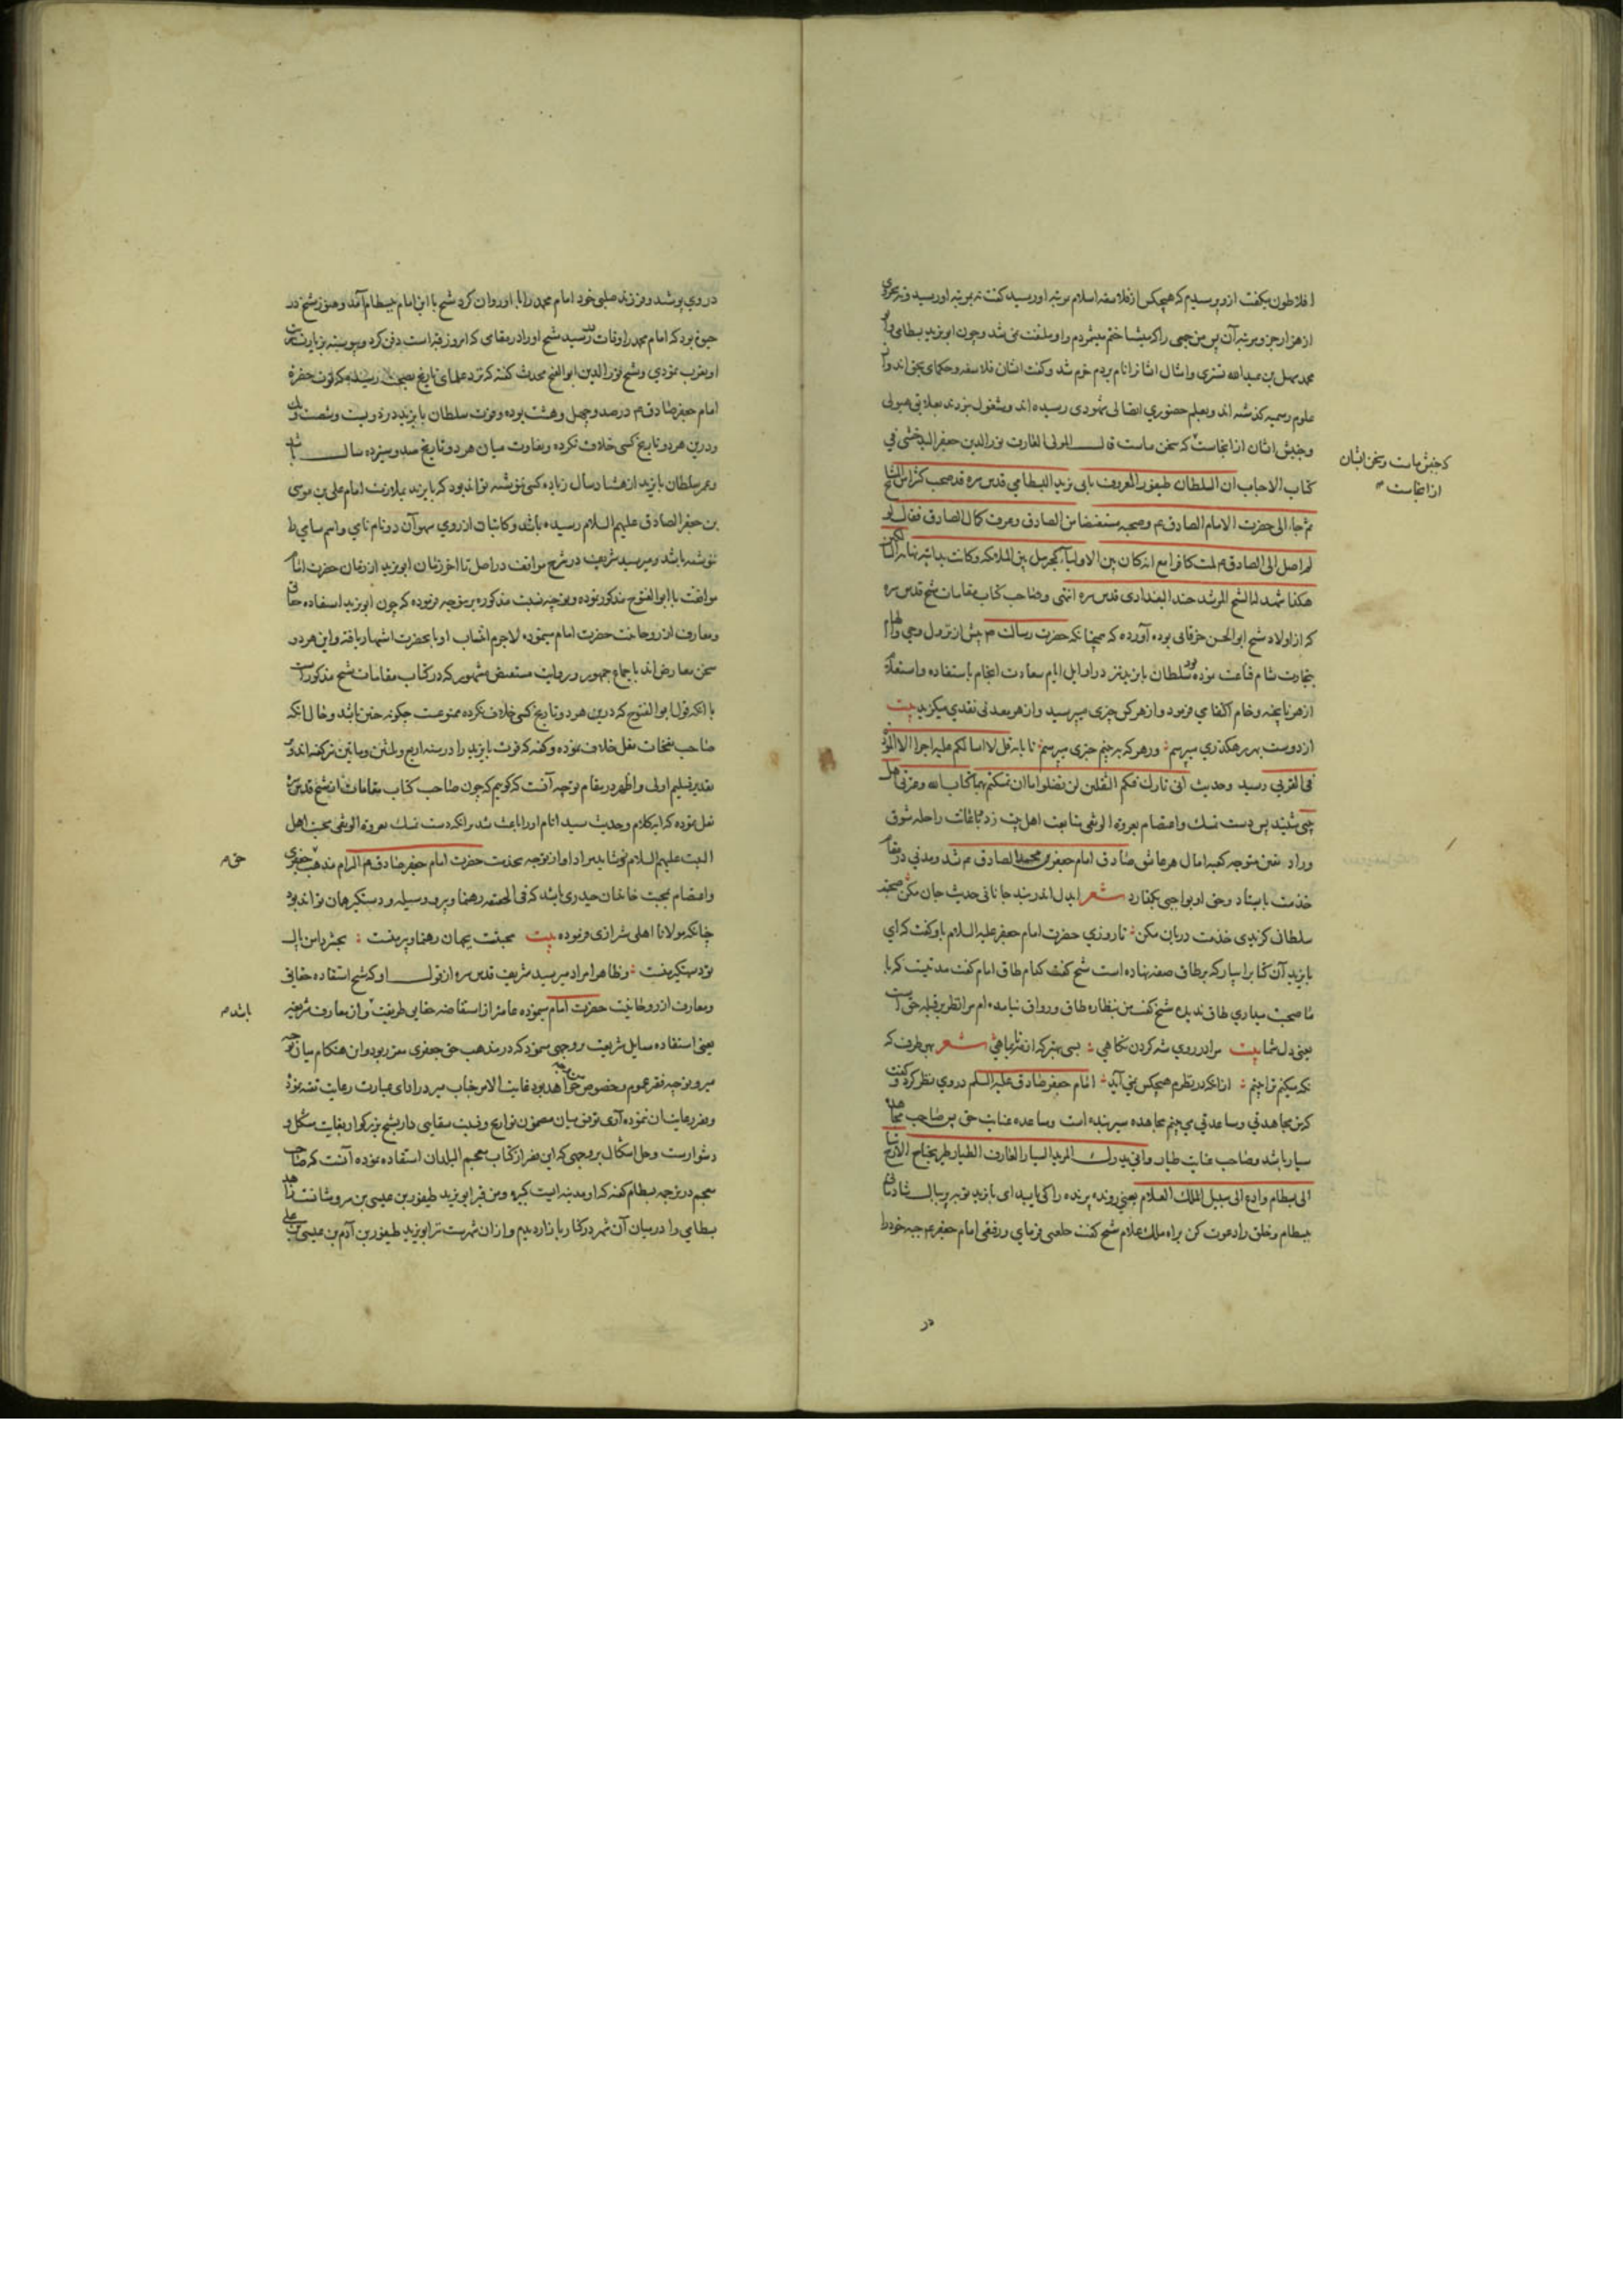 افلاطون میگفت ازو پرسیدم که هیچکس از فلاسفه اسلام بمرتبه او رسید گفت نه بمرتبه او رسید و نه بجزوی
از هزار جزو مرتبه آن پس من جمعی را که میشناختم میشمردم و او ملتفت نمی شد و چون ابو یزید بسطامی و ابو
محمد سهل بن عبدالله تستری و امثال ایشانرا نام بردم خرم شد و گفت ایشان فلاسفه و حکمای بحق اند و از
علوم رسمیه گذشته اند و بعلم حضوری اتصالی شهودی رسیده اند و مشغول نبودند بعلایق هیولی
و جنبش ایشان از آنجاست که سخن ماست قال المولی العارف نور الدین جعفر البدخشی فی
که جنبش ماست و سخن ایشان
از آنجاست
کتاب الاحباب ان السلطان طیفور المعروف بابی یزید البسطامی قدس سره قد صحب کثیرا من المشایخ
ثم جاء الی حضرت الامام الصادق م و صحبه مستفیضا من الصادق و عرف کمال الصادق فقال لو
لم اصل الی الصادق م لمت کافرا مع انه کان بین الاولیاء کجبرئیل بین الملائکه و کانت بدایته نهایة السالکین
هکذا شهد له الشیخ المرشد جنید البغدادی قدس سره انتهی و صاحب کتاب مقامات شیخ قدس سره
که از اولاد شیخ ابوالحسن خرقانی بوده آورده که همچنانکه حضرت رسالت م پیش از نزول وحی و الهام
بتجارت شام قناعت نموده بود سلطان بایزید نیز در اوایل ایام سعادت انجام باستفاده و استعلام
از هر ناپخته و خام اکتفا می فرمود و از هر کس چیزی میپرسید و از هر معدنی نقدی میگزید بیت
از دوست بهر رهگذری میپرسم و ز هر که ببینم خبری میپرسم تا بآیه قل لا اسالکم علیه اجرا الا المودة
فی القربی رسید و حدیث انی تارک فیکم الثقلین لن تضلوا ما ان تمسکتم بهما کتاب الله و عترتی اهل
بیتی شنید پس دست تمسک و اعتصام بعروة الوثقی متابعت اهل بیت زد
متوجه کعبه امال هر عاشق صادق امام جعفر بن محمد الصادق م شد و مدتی در مقام
خدمت بایستاد و حق او بواجبی بگذارد شعر ایدل اندر بند جانانی حدیث جان مکن صحبت
سلطان گزیدی خدمت دربان مکن تا روزی حضرت امام جعفر علیه السلام باو گفت که ای
بایزید آن کتابرا بیار که بر طاق صفه نهاده است شیخ گفت کدام طاق امام گفت مدتیست که با
ما صحبت میداری طاق ندیده شیخ گفت من بنظاره طاق و رواق نیامده ام مرا نظر بر قبله حق است
یعنی دل شما بیت مرا در روی شه کردن نگاهی بسی بهتر که از شعر بهر طرف که
نگه میکنم ترا بینم از آنکه در نظرم هیچکس نمی آید امام جعفر صادق علیه السلم در وی نظر کرد و گفت
که من مجاهدتی و مساعدتی می بینم مجاهده سیر بنده است و مساعده عنایت حق پس صاحب مجاهده
سیار باشد و صاحب عنایت طیار
الی بسطام و ادع الی سبیل الملک العلام یعنی رونده پرنده را
ببسطام و خلق را دعوت کن براه ملک علام شیخ گفت خلعتی فرمای و رفیقی امام جعفر م جبه خود را
در
در وی پوشید و فرزند صلبی خود امام محمد را با او روان کرد شیخ با این امام ببسطام آمد و هنوز شیخ در
حیوة بود که امام محمد را وفات رسید شیخ او را در مقامی که امروز قبر است دفن کرد و پیوسته بزیارت
او تقرب نمودی و شیخ نور الدین ابوالفتح محدث گفته که نزد علمای تاریخ بصحت رسیده که فوت حضرة
امام جعفر صادق م در صد و چهل و هشت بوده و فوت سلطان بایزید در دویست و شصت و یک
و درین هر دو تاریخ کسی خلاف نکرده و تفاوت میان هر دو تاریخ صد و سیزده سال باشد
و عمر سلطان بایزید از هشتاد سال زیاده کسی ننوشته تواند بود که بایزید بملازمت امام علی بن موسی
بن جعفر الصادق علیهم السلام رسیده باشد و کاتبان از روی سهو آن دو نام نامی و اسم سامی
ننوشته باشد و میر سید شریف در شرح مواقف در اصل تأخر زمان ابویزید از زمان حضرت امام
موافقت با ابوالفتوح مذکور نموده و توجیه نسبت مذکوره برین وجه فرموده که چون ابویزید استفاده حقایق
و معارف از روحانیت حضرت امام مینموده لاجرم انتساب او با آنحضرت اشتهار یافته و این هر دو
سخن معارض اند باجماع جمهور و روایت مستفیض مشهور که در کتاب مقامات شیخ مذکور است
با آنکه قول ابوالفتوح که درین هر دو تاریخ کسی خلاف نکرده ممنوعست چگونه چنین باشد و حال آنکه
صاحب نفحات نقل خلاف نموده و گفته که فوت بایزید را در سنه اربع و ثلثین و مایتین نیز گفته اند و بر
تقدیر تسلیم اولی و اظهر درین مقام توجیه آنست که گوییم که چون صاحب کتاب مقامات از شیخ قدس سره
نقل نموده که آیه کلام و حدیث سید انام او را باعث شد برانکه دست تمسک بعروة الوثقی محبت اهل
البیت علیهم السلام زند شاید مراد او از توجه بخدمت حضرت امام جعفر صادق م التزام مذهب جعفری
حق م
و اعتصام بمحبت خاندان حیدری باشد که فی الحقیقه رهنما و پیر و وسیله و دستگیر همان تواند بود
چنانکه مولانا اهلی شیرازی فرموده بیت محبتت بجهان رهنما و پیر منست
بود دستگیر منست و ظاهرا مراد میر سید شریف قدس سره از قول او که شیخ استفاده حقایق
و معارف از روحانیت حضرت امام مینموده عامتر از استفاضه حقایق طریقت و از معارف شرعیه
باشد م
یعنی استفاده مسایل شریعت بر وجهی مینمود که در مذهب حق جعفری مقرر بود و این هنگام میان توجیه
میر و توجیه فقیر عموم و خصوص من وجه خواهد بود غایت الامر جناب میر در ادای عبارت رعایت تقیه نموده
و فقیر رعایت ان ننموده آری توفیق میان مضمون تواریخ و نسبت سقایی دار شیخ بزرگوار بغایت مشکل و
دشوارست و حل اشکال بر وجهی که این فقیر از کتاب معجم البلدان استفاده نموده آنست که صاحب
معجم در ترجمه بسطام گفته که او مدینه ایست کبیره و من قبر ابویزید طیفور بن عیسی بن سروشان زاهد
بسطامی را در میان آن شهر در کنار بازار دیدم و از ان شهرست نیز ابویزید طیفور بن آدم بن عیسی بن علی